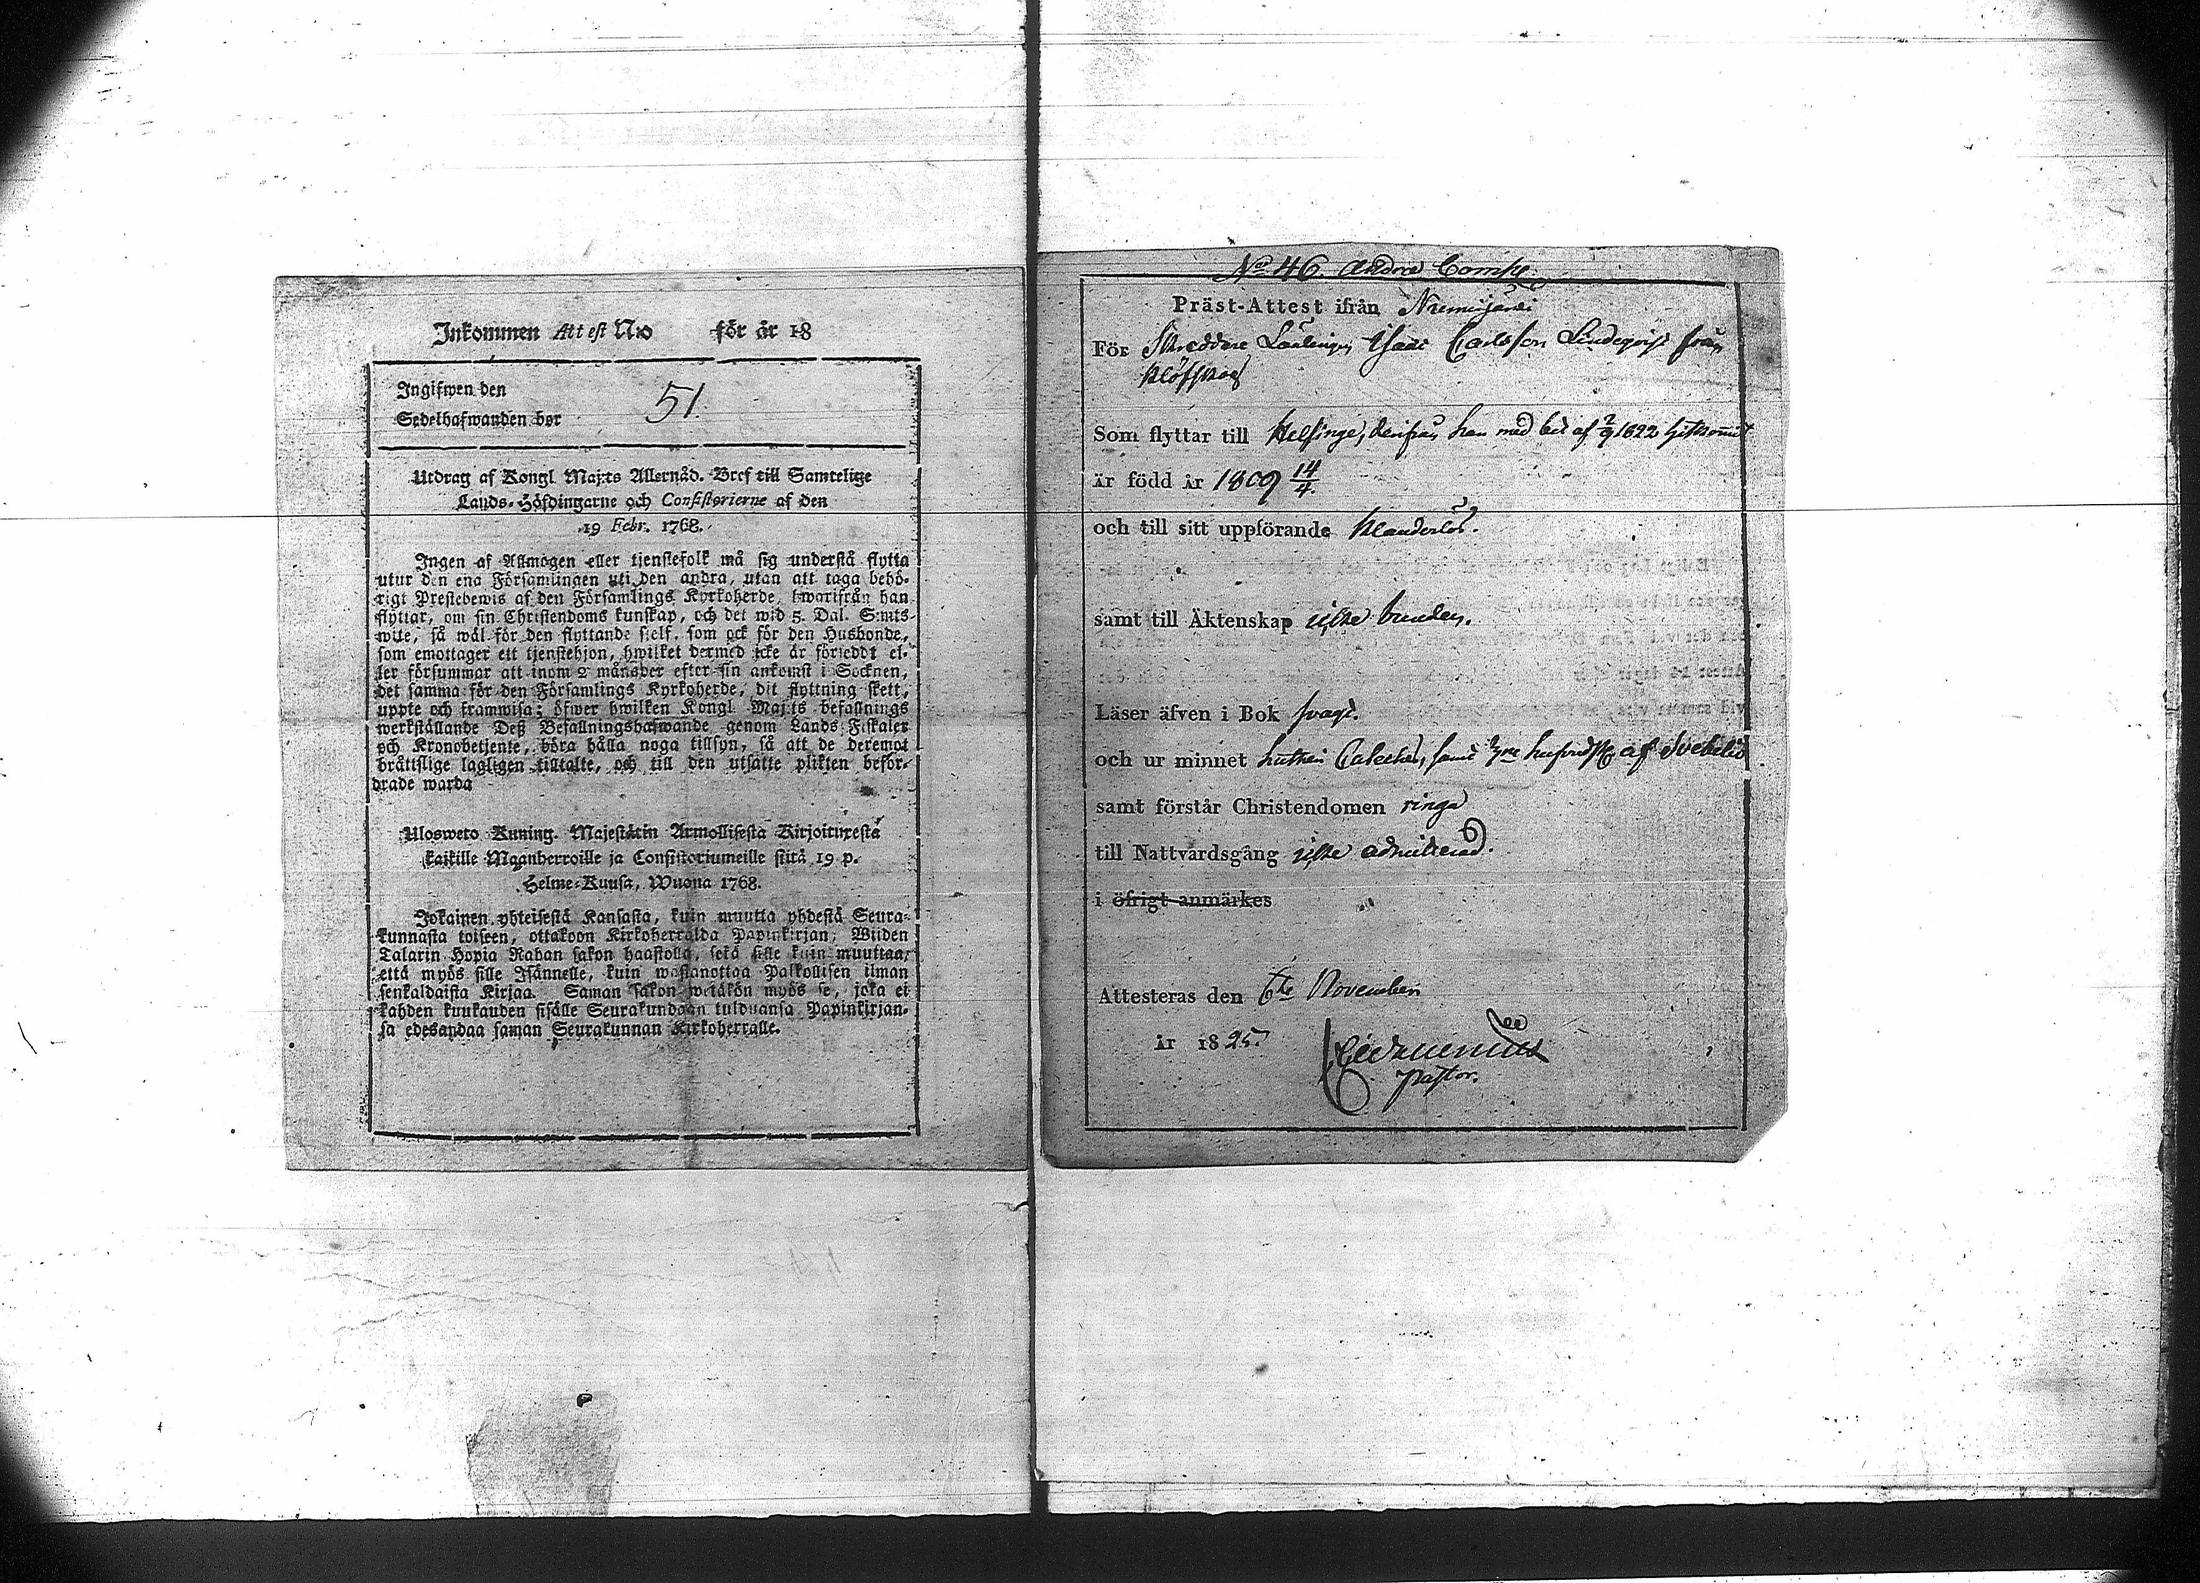 Inkommen Attest N:o för år 18
Ingifwen den
Sedelhafwanden bor
51.
Utdrag af Kongl Maj:ts Allernåd. Bref till Samtelige
Lands-Höfdingarne och Consistorierne af den
19 Febr. 1768.
Ingen af Allmogen eller tjenstefolk må sig understå flytta
utur den ena Församlingen uti den andra, utan att taga behö-
rigt Prestebewis af den Församlings Kyrkoherde, hwarifrån han
flyttar, om sin Christendoms kunskap, och det wid 5. Dal. S:mts-
wite, så wäl för den flyttande sjelf, som ock för den Husbonde,
som emottager ett tjenstehjon, hwilket dermed icke är försedt el-
ler försummar att inom 2 månader efter sin ankomst i Socknen,
det samma för den Församlings Kyrkoherde, dit flyttning skett,
uppte och framwisa; öfwer hwilken Kongl Maj:ts befallnings
werkställande Deß Befallningshafwande genom Lands-Fiskaler
och Kronobetjente, böra hålla noga tillsyn, så att de deremot
bråttslige lagligen tilltalte, och till den utsatte plikten beför-
drade warda
Ulosweto Kuning. Majestätin Armollisesta Kirjoituxesta
kaikille Maanherroille ja Consistoriumeille siitä 19 p.
Helme-Kuusa, Wuona 1768.
Jokainen yhteisestä Kansasta, kuin muutta yhdestä Seura-
kunnasta toiseen, ottakoon Kirkoherralda Papinkirjan, Wiiden
Talarin Hopia Rahan sakon haastolla, sekä sille kuin muuttaa,
että myös sille Isännelle, kuin wastanottaa Palkollisen ilman
senkaldaista Kirjaa. Saman sakon wetäkön myös se, joka ei
kahden kuukauden sisälle Seurakundaan tulduansa Papinkirjan-
sa edesandaa saman Seurakunnan Kirkoherralle.
No 46. Andra Comp.
Präst-Attest ifrån Nurmijärvi
För Skreddare Lärlingen Isaac Carlsson Lindeqvist från
Klöfskog
Som flyttar till Helsinge, derifrån han med bet af 2/9 1822 hitkommit
är född år 1809 14/4.
och till sitt uppförande klanderlös.
samt till Äktenskap icke bunden.
Läser äfven i Bok svagt.
och ur minnet Lutheri Cateches, samt af Svebelius
samt förstår Christendomen ringa
till Nattvardsgång icke admitterad.
i öfrigt anmärkes
Attesteras den 6te November
år 1825.
Pastor.